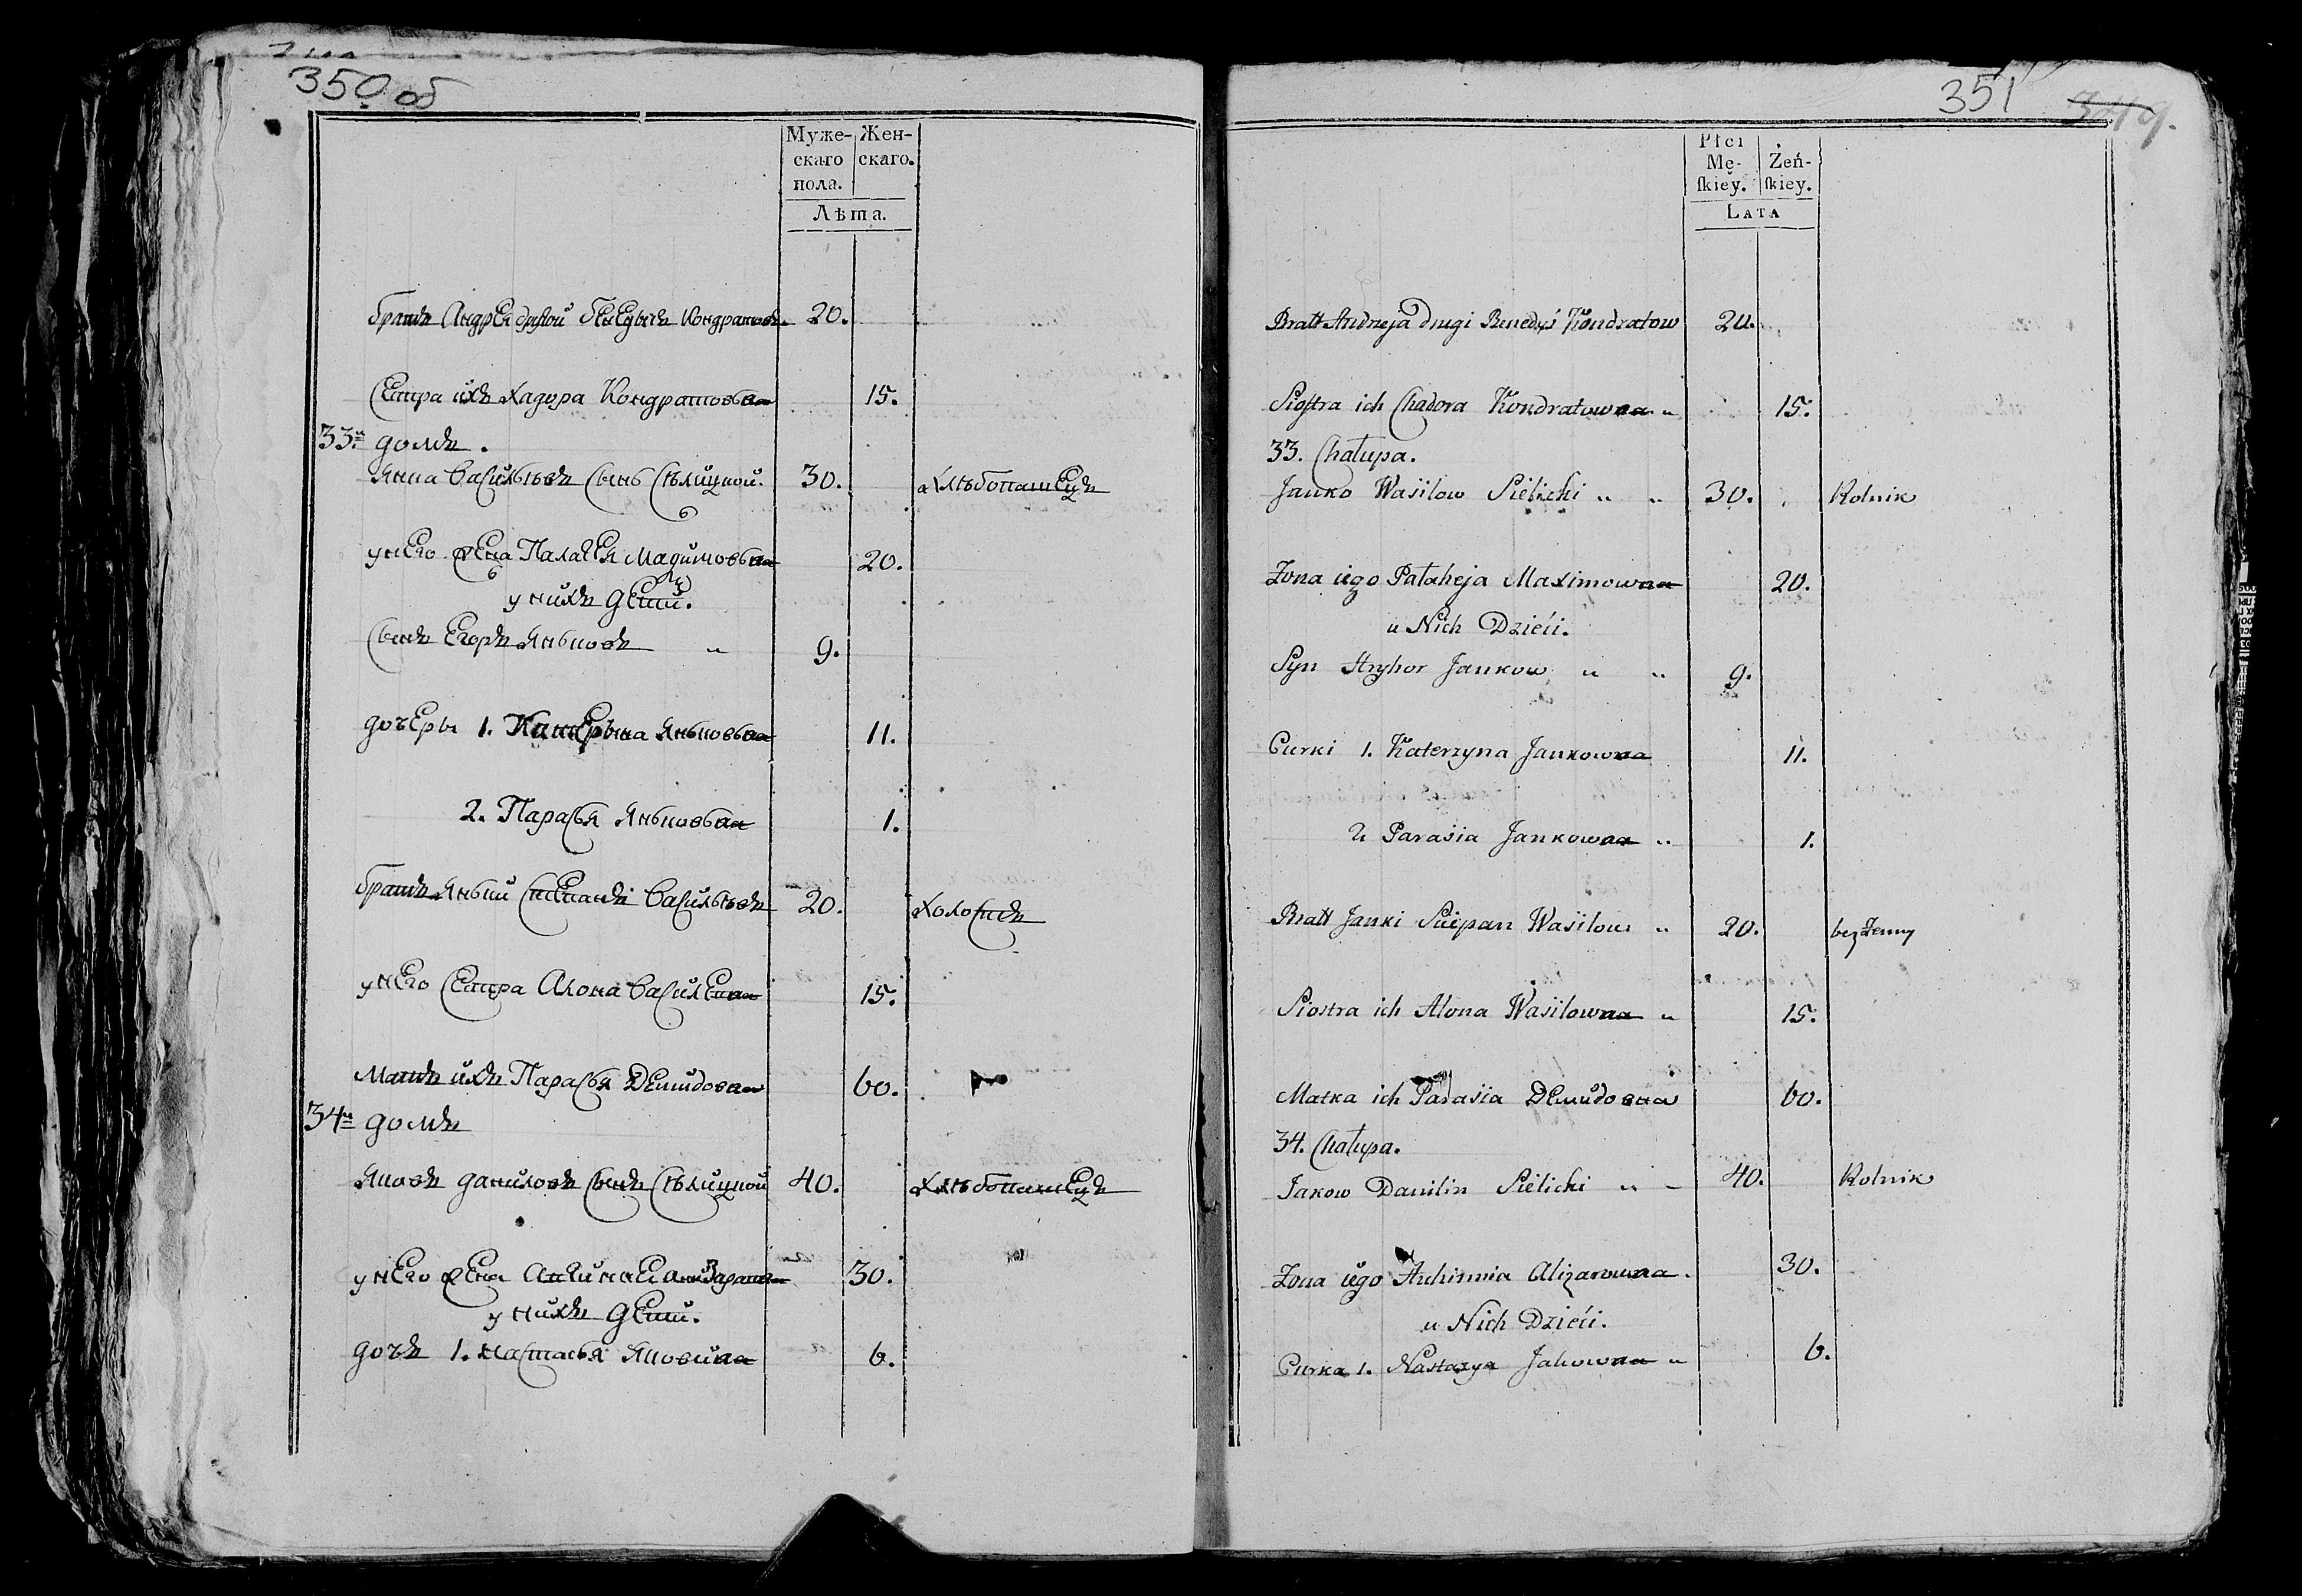 350 об
Муже- Жен-
скаго скаго.
пола.
Лѣта.
братъ Андрея другой Бенедытъ Кондратовъ. 20.
Сестра ихъ Хадора Кондратовна 15.
33й домъ.
Янка Васильевъ сынъ Сѣлицкой. 30. хлѣбопашецъ
у него жена Палагея Мадимовна 20.
у нихъ дети.
Сынъ Егоръ Яньковъ " 9.
дочеры 1. Катерына Яньковна 11.
2. Парасья Яньковна 1.
братъ Яньки Степанъ Васильевъ 20. холостъ
у него Сестра Алона Василевна 15.
Мать ихъ Парасья Демидовна 60.
34й домъ
Яковъ даниловъ сынъ Сѣлицкой 40. хлѣбопашецъ
у него жена 30.
у нихъ дети.
дочь 1. настасья Яковина 6.
351 349.
Płci
Mę- Żeń-
ſkiey. ſkiey.
LATA
Bratt Andrzeja drugi Benedyś Kondratow 20.
Siostra ich Chadora Kondratowna " 15.
33. Chałupa.
Janko Wasilow Sielicki " " 30. Rolnik
Zona iego Pałaheja Maximowna 20.
u Nich Dzieci.
Syn Hryhor Jankow " " 9.
Curki 1. Katerzyna Jankowna 11.
2 Parasia Jankowna " 1.
Bratt Janki Sciepan Wasilow " 20. bez Zenny
Siostra ich Alona Wasilowna " 15.
Matka ich Parasia Демидовна 60.
34. Chałupa.
Jakow Danilin Sielicki " – 40. Rolnik
Zona iego Auhinnia Alizarowna. 30.
u Nich Dzieci.
Curka 1. Nastazya Jakowna " 6.